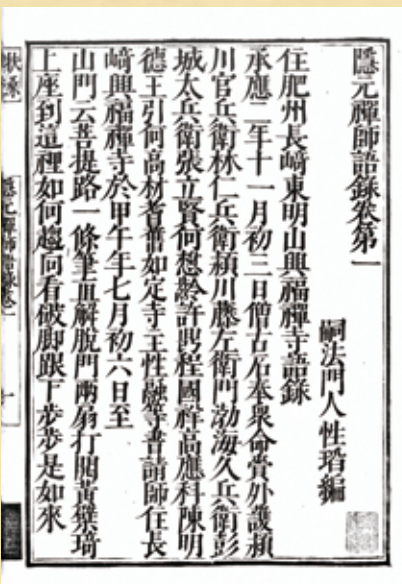 隱元禪師語錄卷第一
嗣法門人性瑫編
住肥州長崎東明山興福禪寺語錄
承應二年十一月初三日僧古石奉衆命賫外護潁
川官兵衛林仁兵衛潁川藤左衛門渤海久兵衛彭
城太兵衛張立賢何想齡許
程國祥高應科陳明
德王引何高材
普如定寺主性融等書請師住長
崎興福禪寺於甲午年七月初六日至
山門云菩提路一條筆直解脫門兩扇打開黃檗琦
上座到這裡如何趨向看破脚跟下步步是如來
隱元禪師語錄卷一